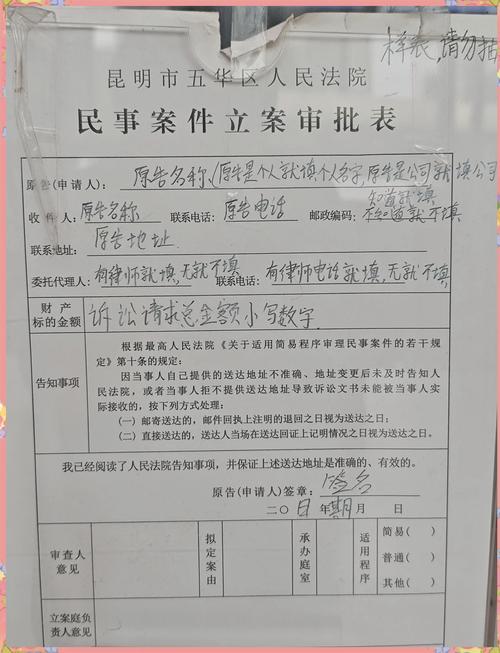 样表,请勿拍
昆明市五华区人民法院
民事案件立案审批表
原告(申请人): 原告名称,(原告是个人就填个人名字,原告是公司就填公司
知道就填
收件人: 原告名称 联系电话: 原告电话 邮政编码: 不知道就不填
联系地址: 原告地址
委托代理人: 有律师就填,无就不填 联系电话: 有律师电话就填,无就不填,
财产
标的金额
诉讼请求总金额小写数字
告知事项
根据最高人民法院《关于适用简易程序审理民事案件的若干规
定》第十条的规定:
因当事人自己提供的送达地址不准确、地址变更后未及时告知人
民法院,或者当事人拒不提供送达地址导致诉讼文书未能被当事人实
际接收的,按下列方式处理:
(一)邮寄送达的,邮件回执上注明的退回之日视为送达之日;
(二)直接送达的,送达人当场在送达回证上记明情况之日视为送达之日。
我已经阅读了人民法院告知事项,并保证上述送达地址是准确的、有效的。
原告(申请人)签章: 签名
二〇日 年期月 日
审查人
意见
拟定案由
承办庭室
适用程序
简易( )
普通( )
其他( )
立案庭负
责人意见